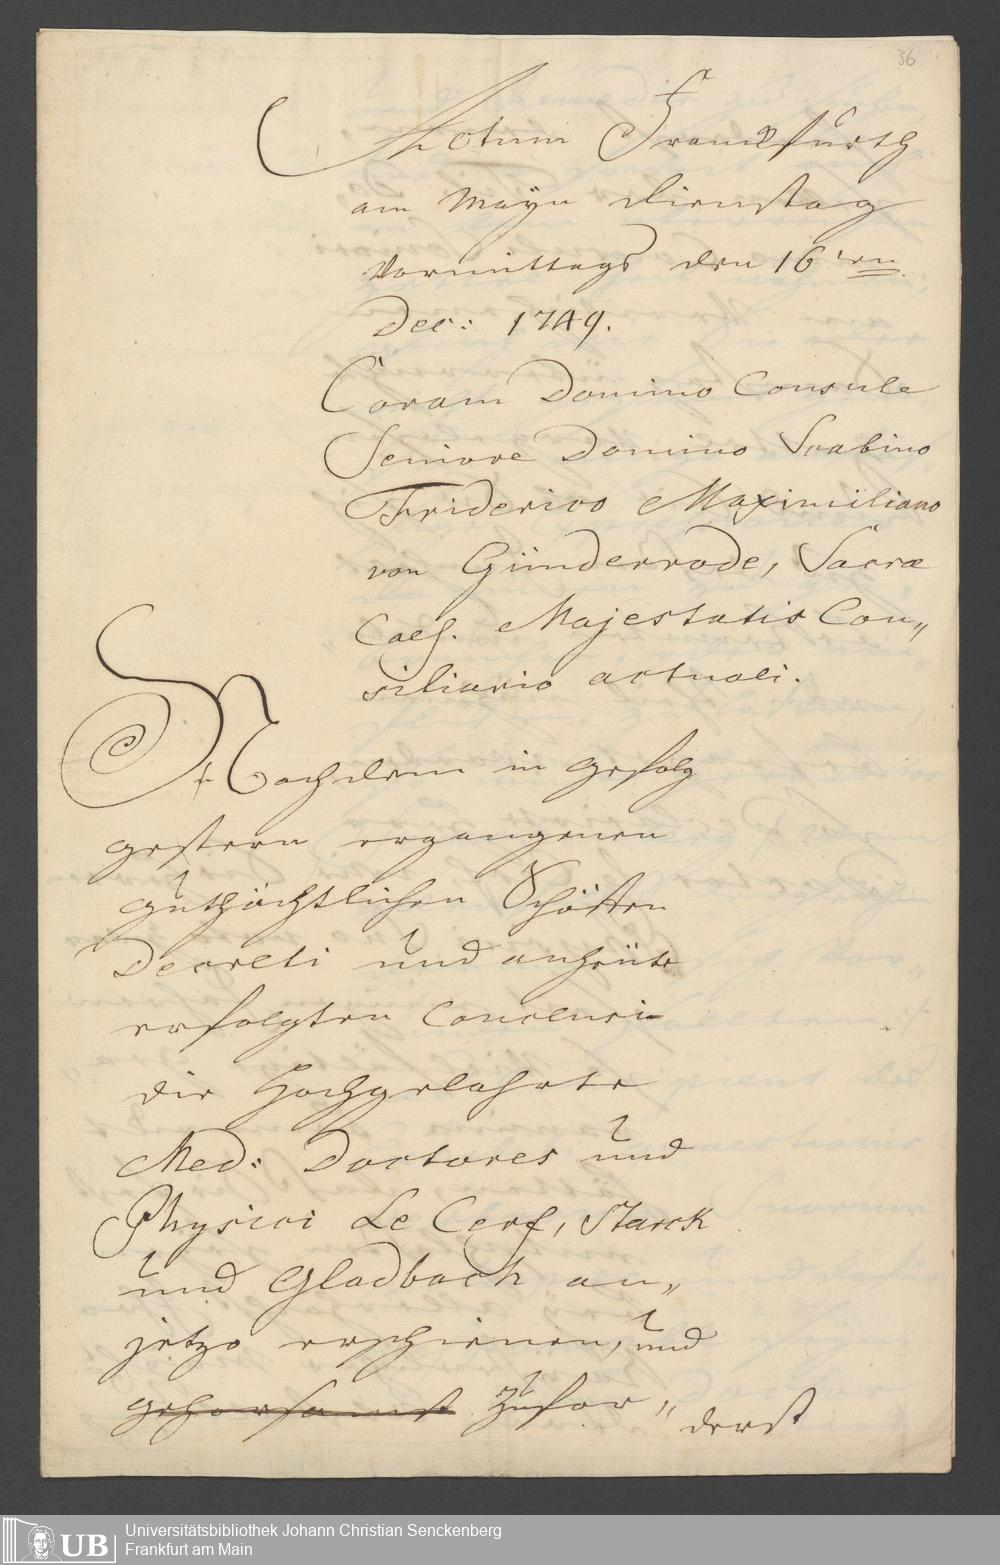 36
Actum Franckfurth
am Mayn Dienstag
Vormittags den 16ten
Dec: 1749.
Coram Domino Consule
Seniore Domino Scabino
Friderico Maximiliano
von Günderrode, Sacræ
Caes. Majestatis Con„
siliario actuali.
Nachdem in gefolg
gestern ergangenen
guthächtlichen Schöffen
Decreti und anheute
erfolgten Conclusi
die Hochgelahrte
Med: Doctores und
Physici Le Cerf, Starck
und Gladbach an„
jetzo erschienen, und
gehorsamst zufor„
derst
UB
Universitätsbibliothek Johann Christian Senckenberg
Frankfurt am Main